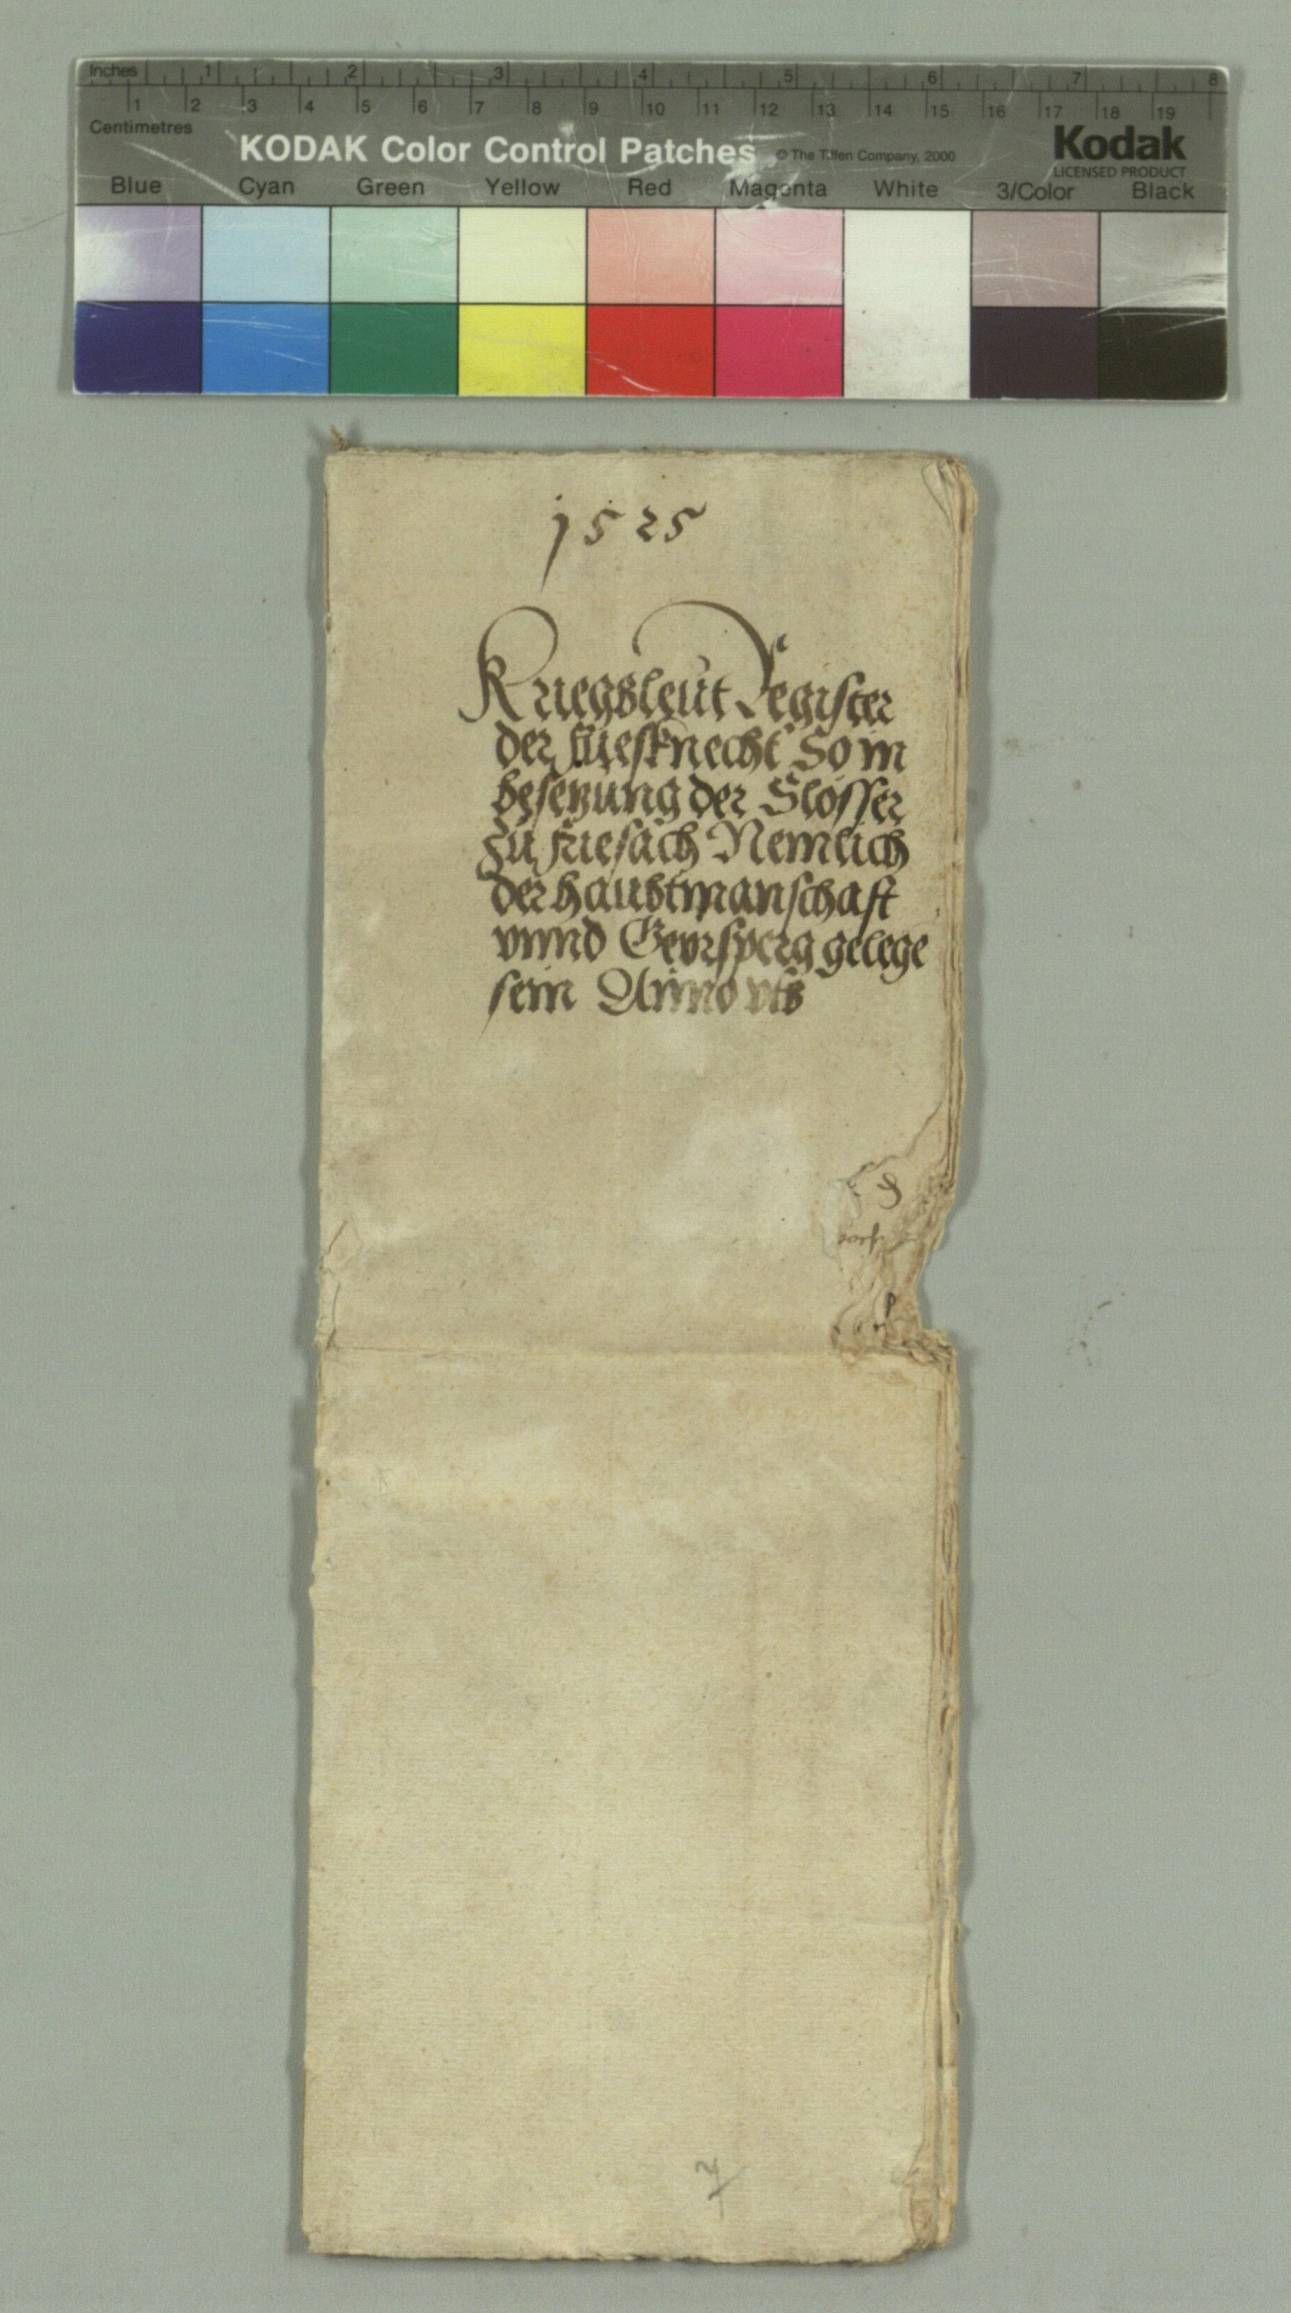 Inches 1 2 3 4 5 6 7 8
1 2 3 4 5 6 7 8 9 10 11 12 13 14 15 16 17 18 19
Centimetres
KODAK Color Control Patches © The Tiffen Company, 2000 Kodak
LICENSED PRODUCT
Blue Cyan Green Yellow Red Magenta White 3/Color Black
1525
Kriegsleut Register
der fuesknecht So in
besetzung der Slosser
zu friesach Nemlich
der haubtmanschaft
vnnd Geyrsperg gelege
sein Anno vts